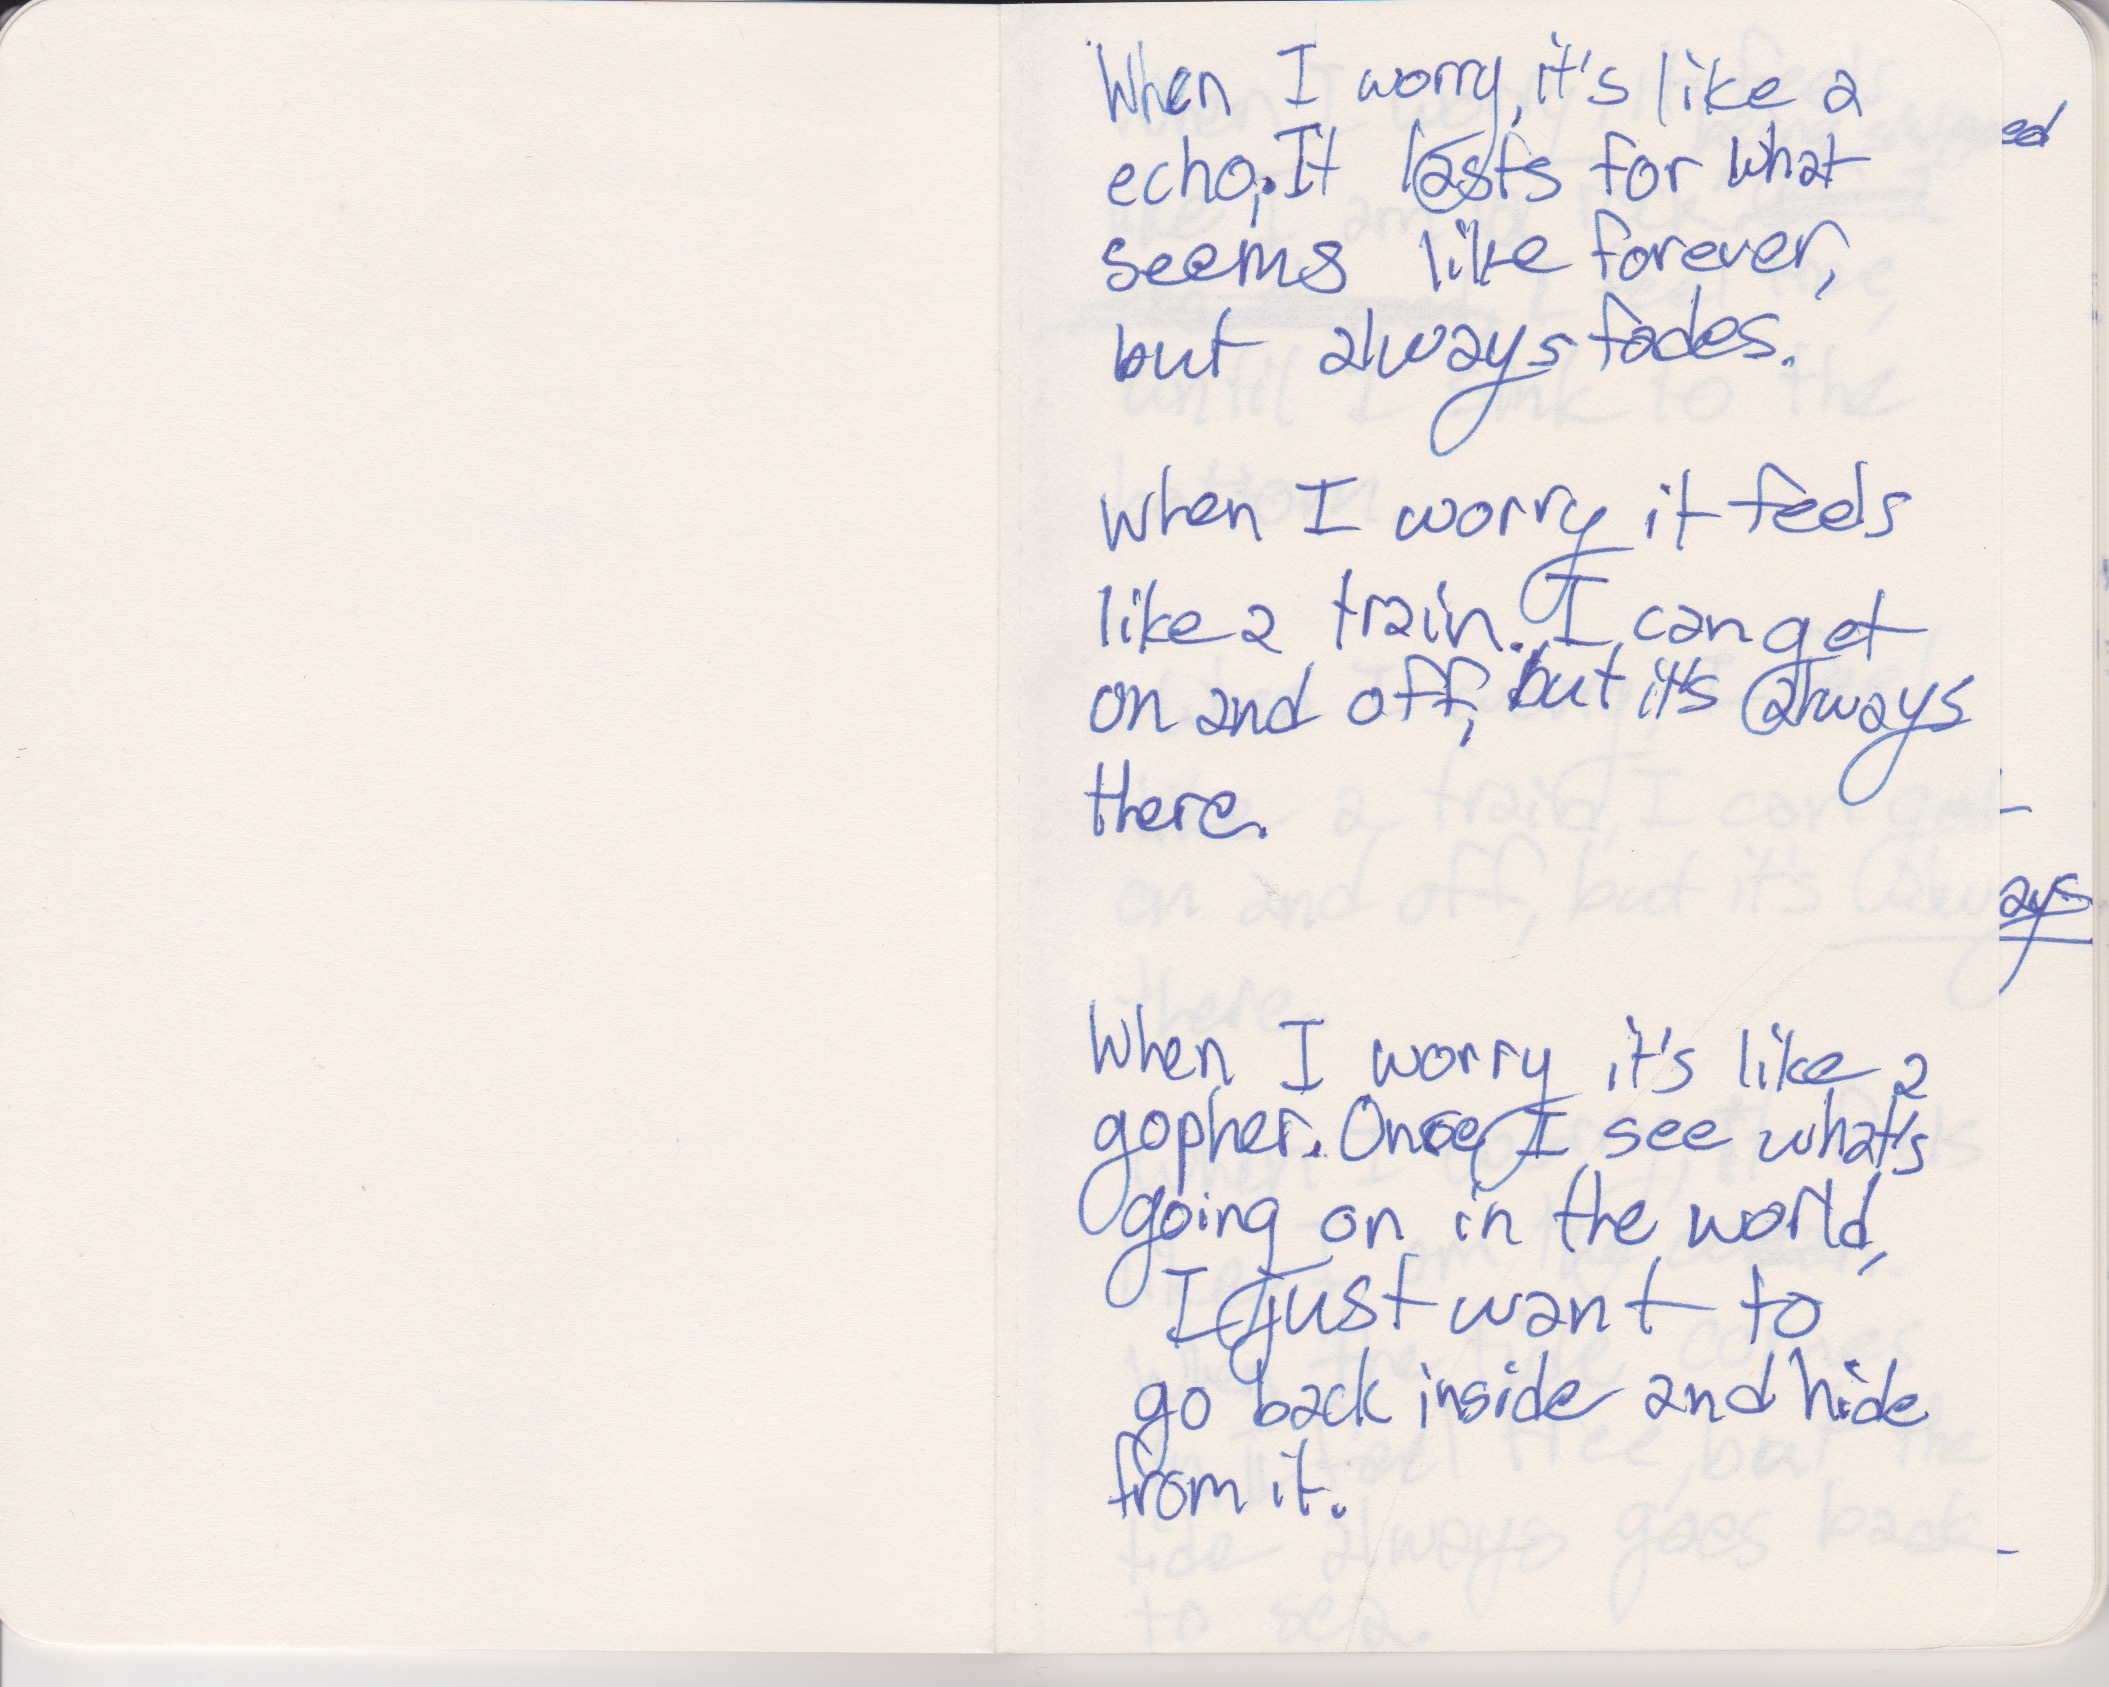 When I worry, it's like a
echo. It lasts for what
seems like forever,
but always fades.
When I worry it feels
like a train. I can get
on and off, but it's always
there.
When I worry it's like a
gopher. Once I see what's
going on in the world,
I just want to
go back inside and hide
from it.
ed
ays